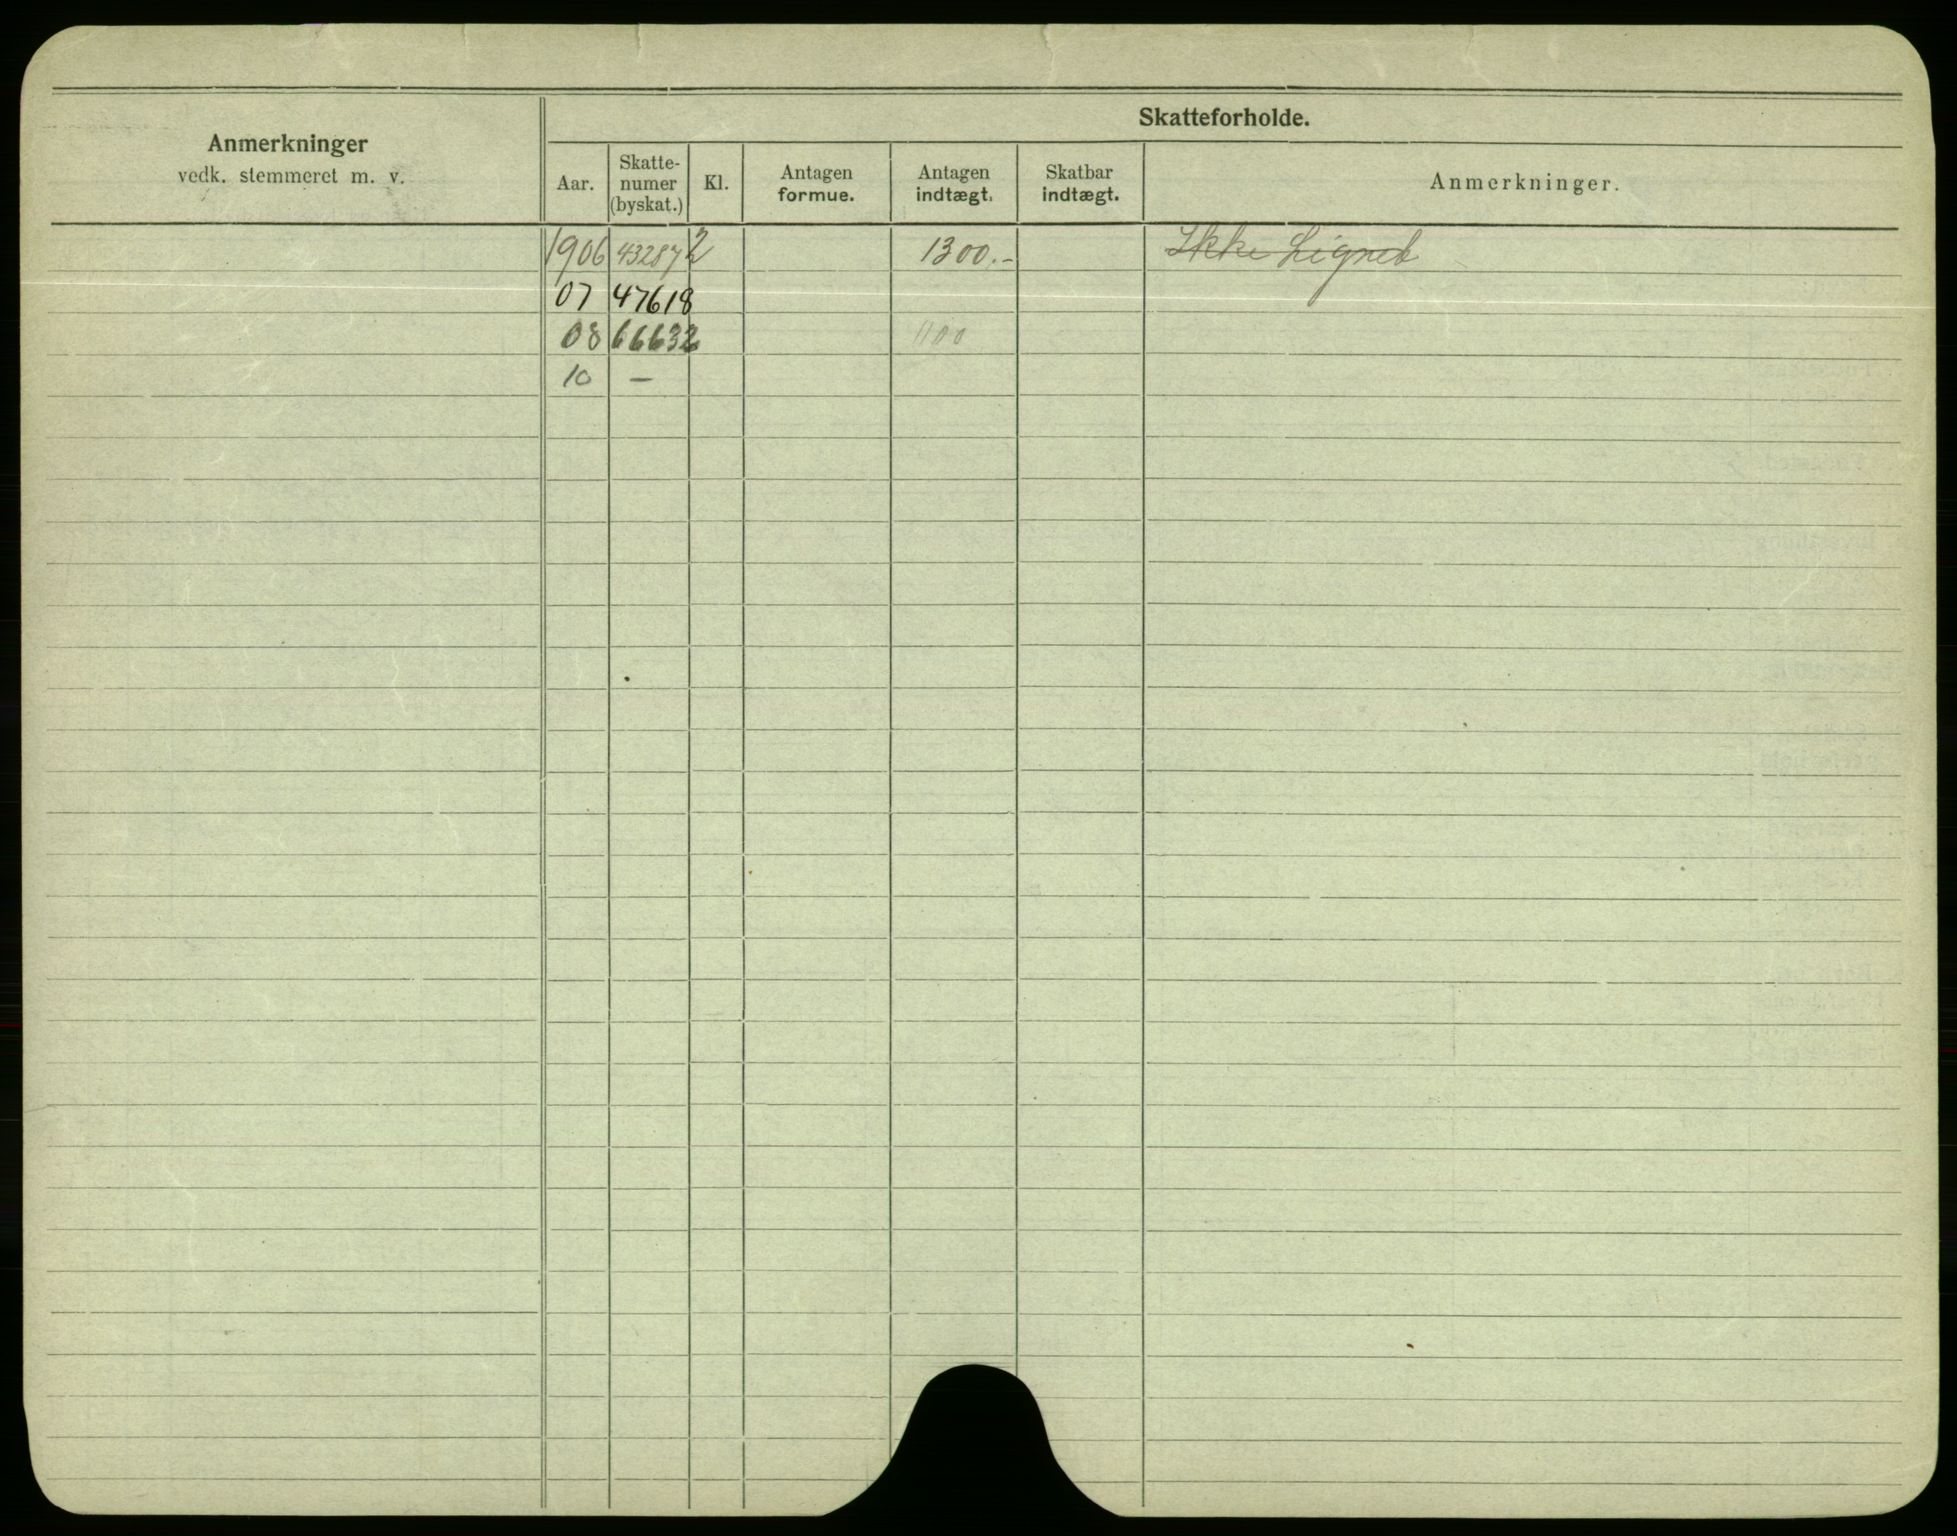 Skatteforholde.
Anmerkninger
vedk. stemmeret m. v.
Aar.
Skatte-
numer
(byskat.)
Kl.
Antagen
formue.
Antagen
indtægt.
Skatbar
indtægt.
Anmerkninger.
1906 43287 2 1300.- Ikke Lignet
07 47618
08 66632 1100
10 —